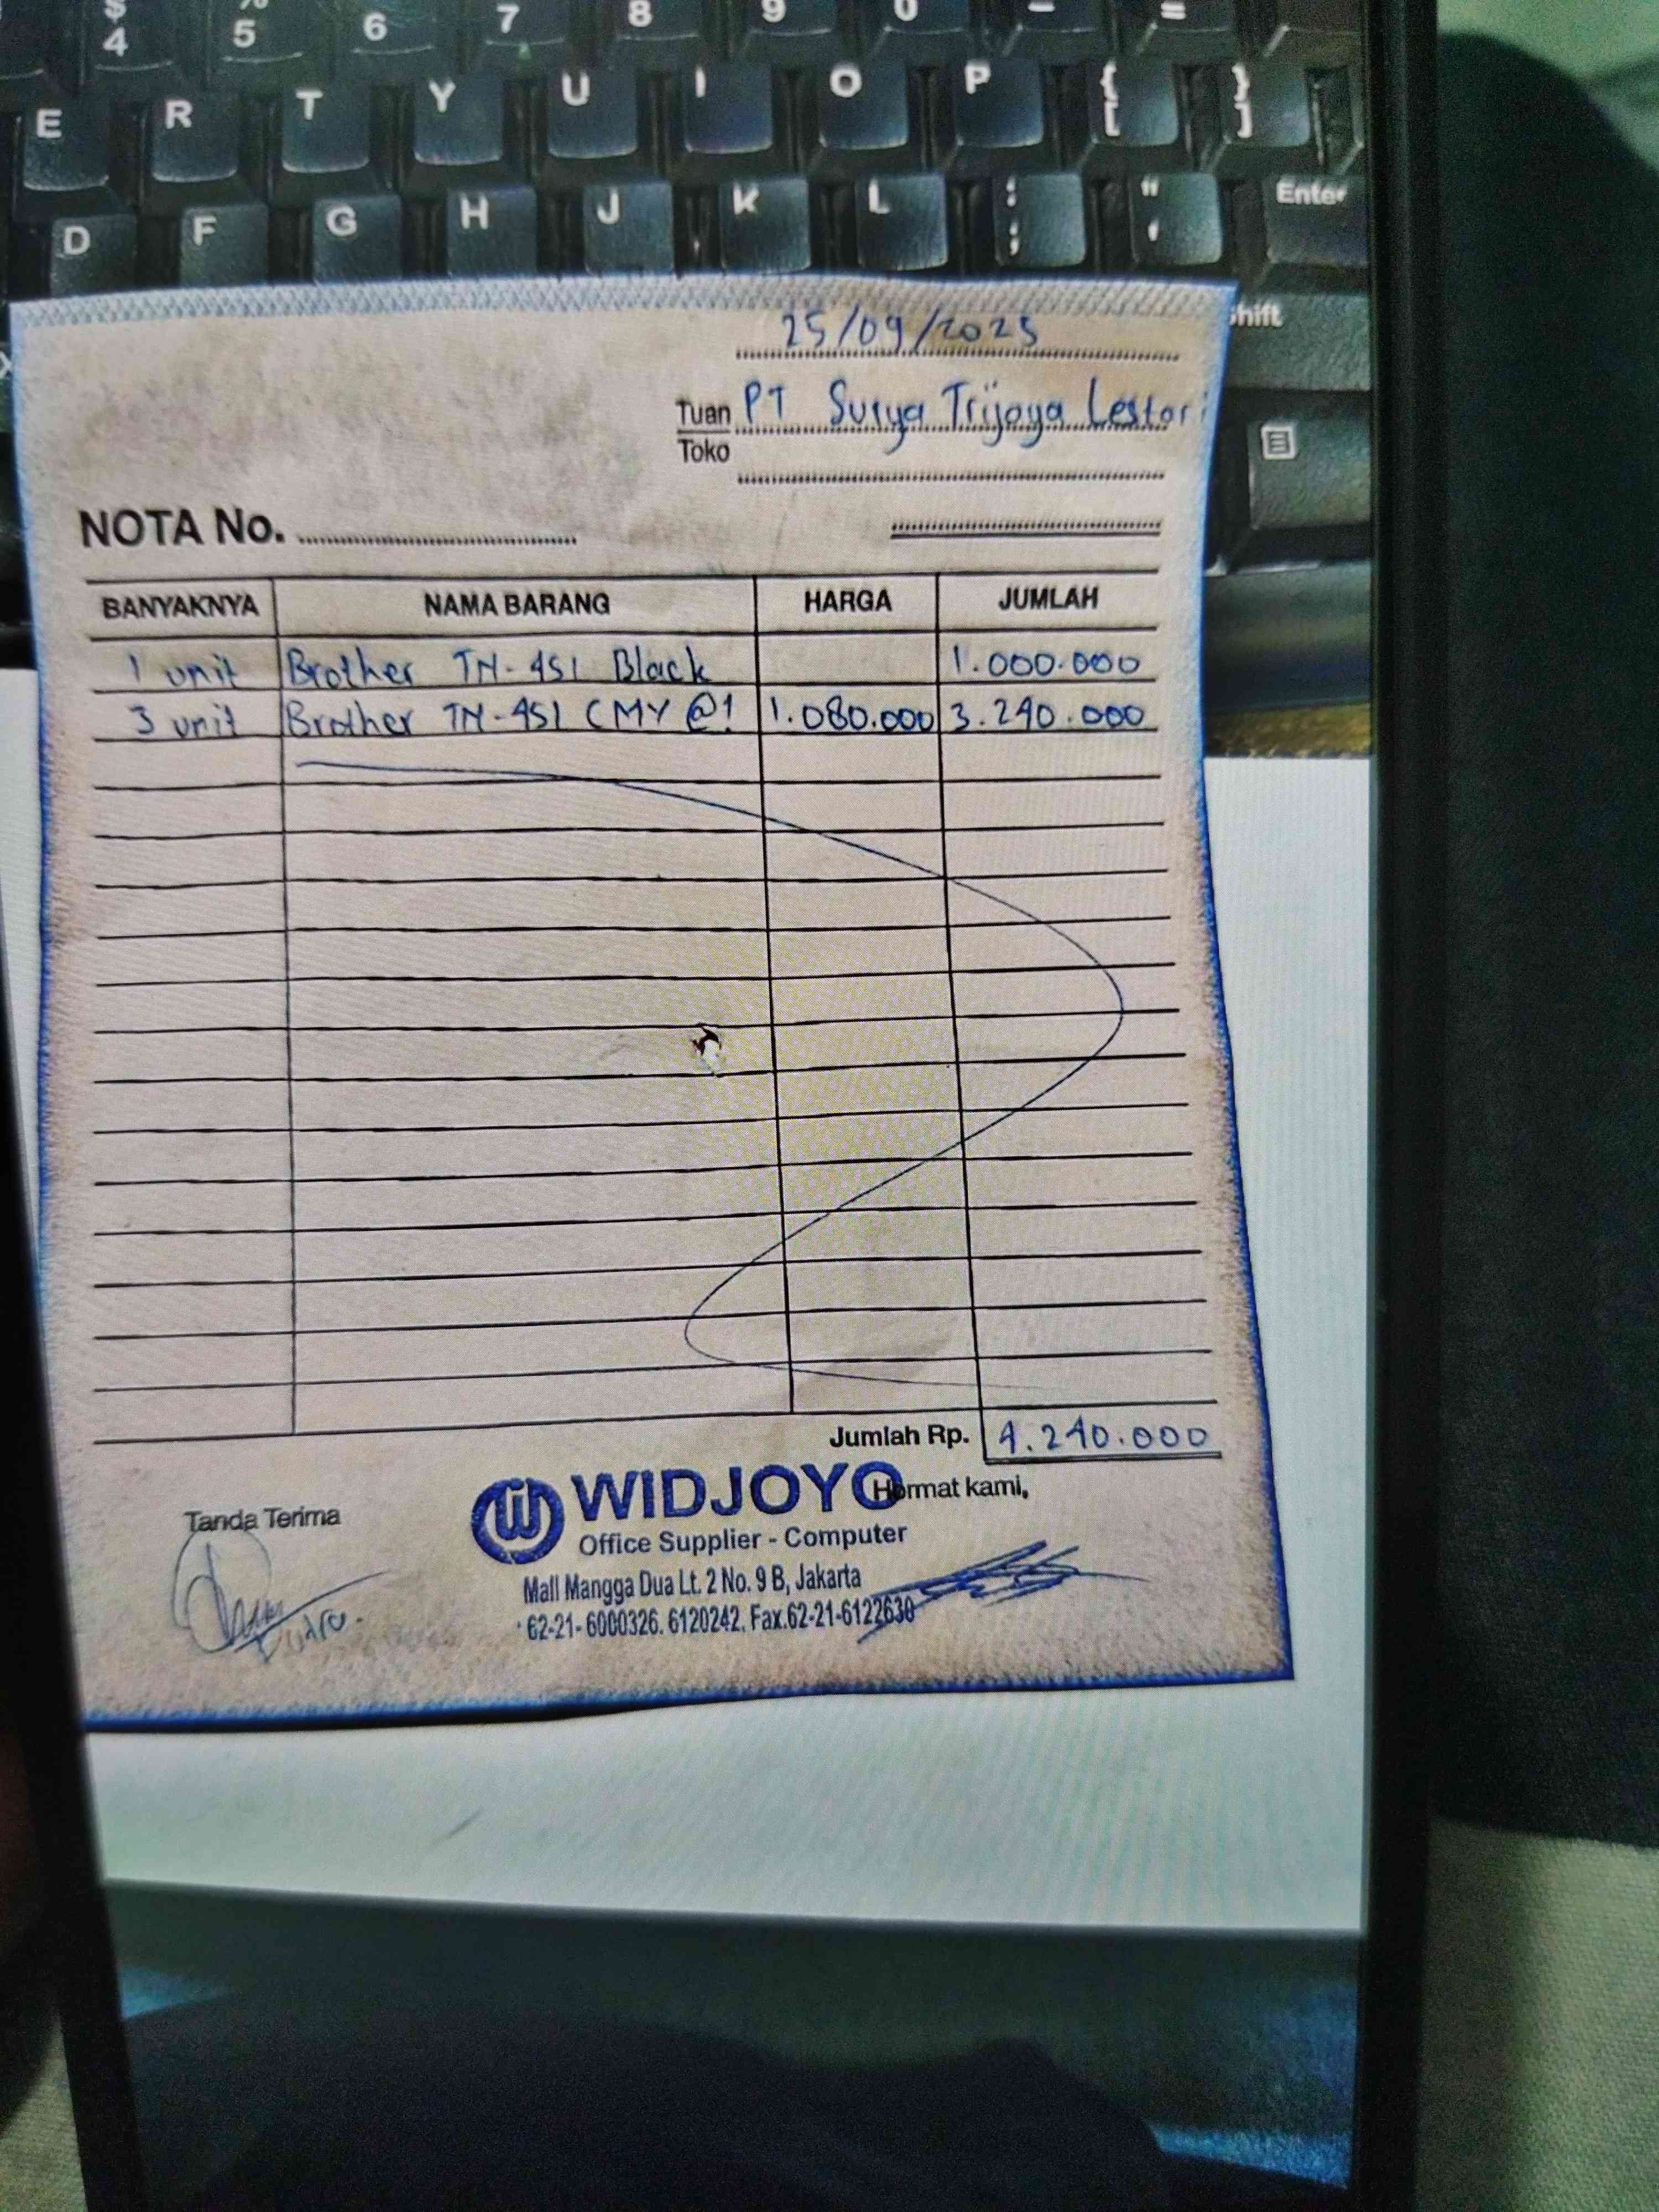 $ % 
4 5 6 7 8 9 0 - =
E R T Y U I O P { [ } ]
D F G H J K L : ; " ' Enter
Shift
25/09/2025
Tuan PT Surya Trijaya Lestari
Toko
NOTA No.
BANYAKNYA NAMA BARANG HARGA JUMLAH
1 unit Brother TN-451 Black 1.000.000
3 unit Brother TN-451 CMY @1 1.080.000 3.240.000
Jumlah Rp. 4.240.000
Tanda Terima
WIDJOYO
Hormat kami,
Office Supplier - Computer
Mall Mangga Dua Lt. 2 No. 9 B, Jakarta
62-21-6000326. 6120242, Fax.62-21-6122630